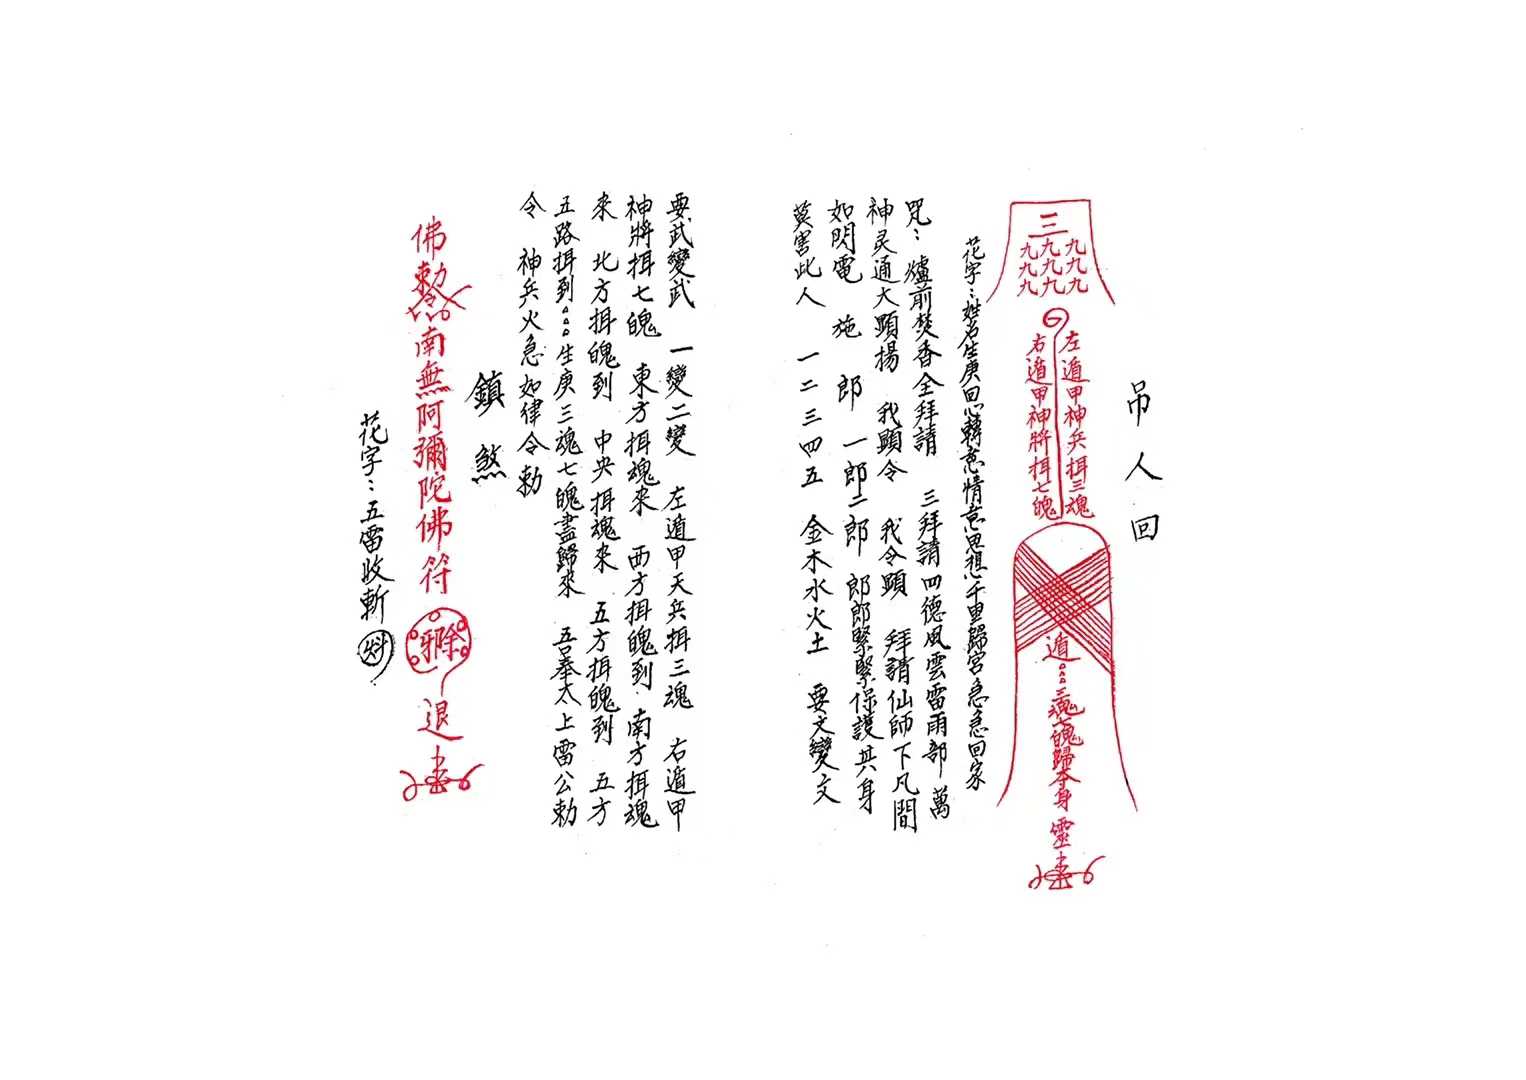 吊人回
三
九九九
九九九
九九九
左遁甲神兵揖三魂
右遁甲神將揖七魄
遁。。。三魂七魄歸本身
靈
花字：姓名生庚回心轉意情意思想千里歸宮急急回家
咒：爐前焚香全拜請 三拜請四德風雲雷雨部 萬
神灵通大顯揚 我顯令 我令顯 拜請仙師下凡間
如閃電 施郎一郎二郎 郎郎緊緊保護其身
莫害此人 一二三四五 金木水火土 要文變文
要武變武 一變二變 左遁甲天兵揖三魂 右遁甲
神將揖七魄 東方揖魂來 西方揖魄到 南方揖魂
來 北方揖魄到 中央揖魂來 五方揖魄到 五方
五路揖到。。。生庚三魂七魄盡歸來 吾奉太上雷公勅
令 神兵火急如律令勅
鎮煞
佛勅令南無阿彌陀佛符
除邪
退
花字：五雷收斬